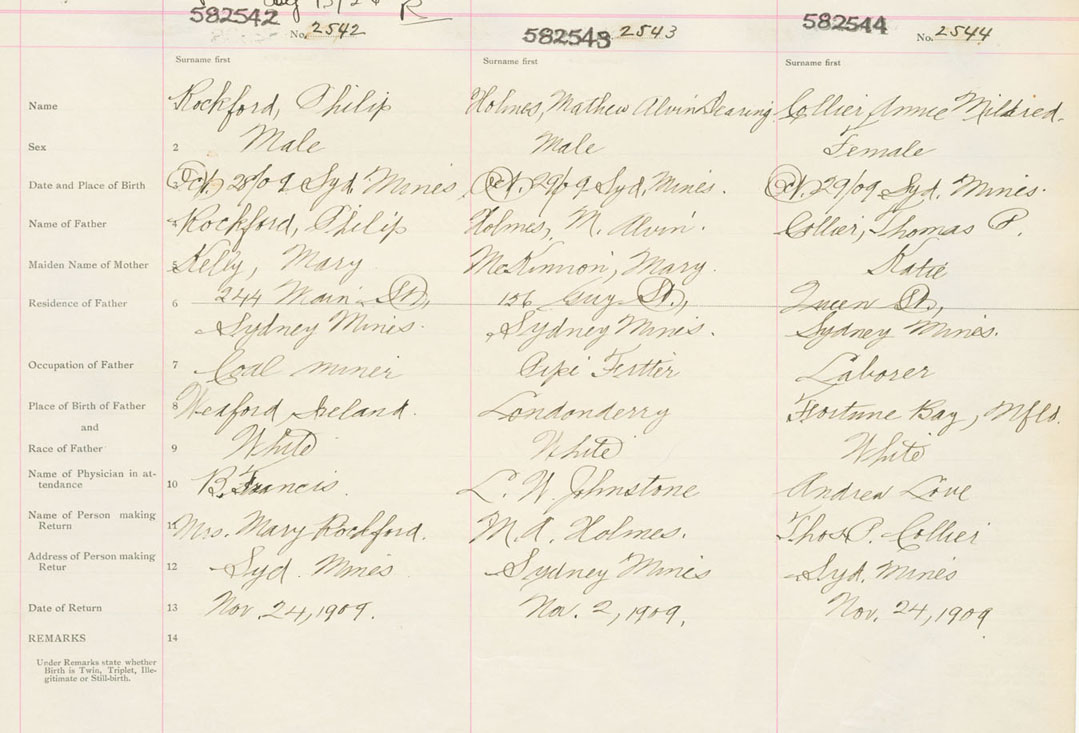 Aug 13/24 R
582542 582543 582544
No. 2542 2543 No. 2544
Surname first Surname first Surname first
Name Rockford, Philip Holmes, Mathew Alvin Dearing Collier, Annie Mildred.
Sex 2 Male Male Female
Date and Place of Birth 3 Oct. 28/09 Syd. Mines Oct. 29/09 Syd, Mines. Oct. 29/09 Syd. Mines.
Name of Father 4 Rockford, Philip Holmes, M. Alvin. Collier, Thomas P.
Maiden Name of Mother 5 Kelly, Mary McKinnon, Mary. Katie
Residence of Father 6 244 Main St., 156 Guy St., Queen St.,
Sydney Mines. Sydney Mines. Sydney Mines.
Occupation of Father 7 Coal miner Pipe Fitter Laborer
Place of Birth of Father 8 Wexford Ireland. Londonderry Fortune Bay, Nfld.
and
Race of Father 9 White White White
Name of Physician in at- 10 B. Francis. L. W. Johnstone Andrew Love
tendance
Name of Person making 11 Mrs. Mary Rockford. M. A. Holmes. Thos P. Collier
Return
Address of Person making 12 Syd. Mines Sydney Mines Syd. Mines
Retur
Date of Return 13 Nov. 24, 1909. Nov. 2, 1909. Nov. 24, 1909
REMARKS 14
Under Remarks state whether
Birth is Twin, Triplet, Ille-
gitimate or Still-birth.